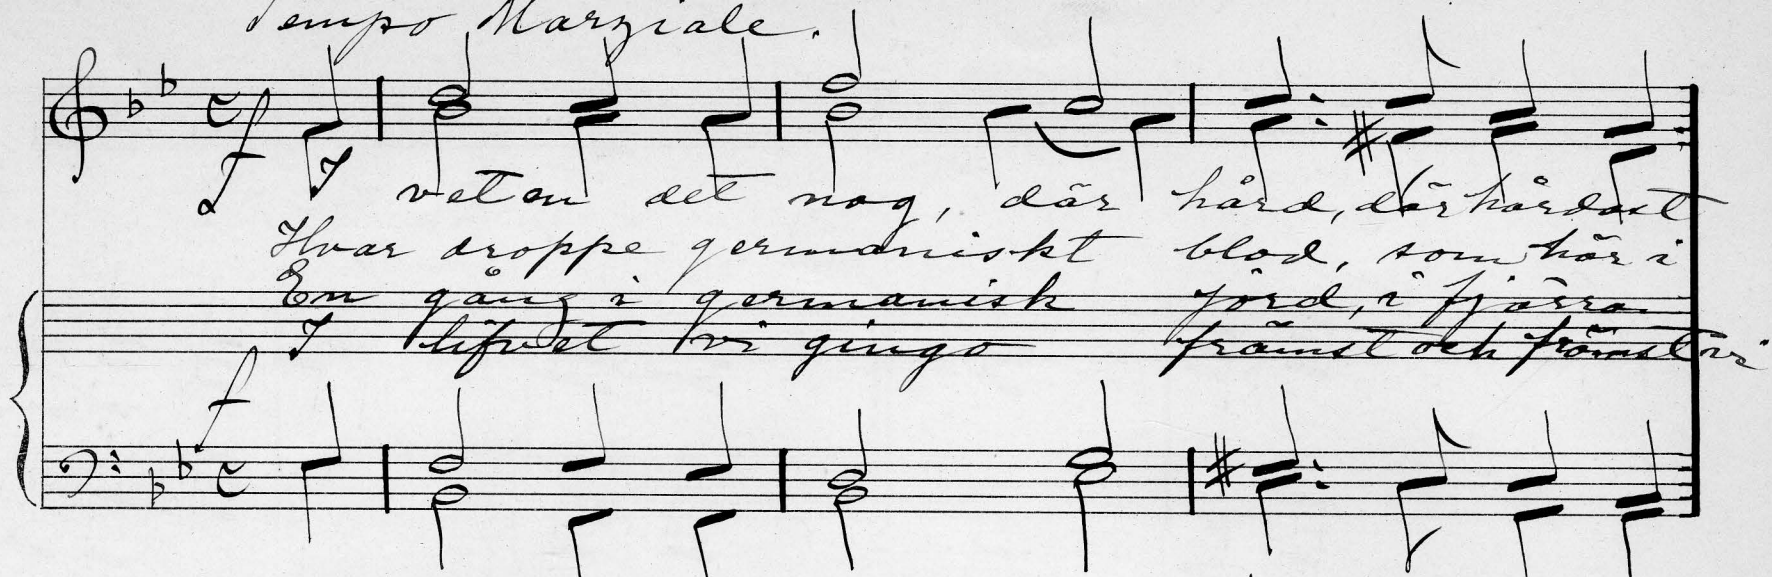 Tempo Marziale.
f I veten det nog, där hård, där hårdast
Hvar droppe germaniskt blod, som här i
En gång i germanisk jord, i fjärra
I lifvet vi gingo främst och främst vi
f